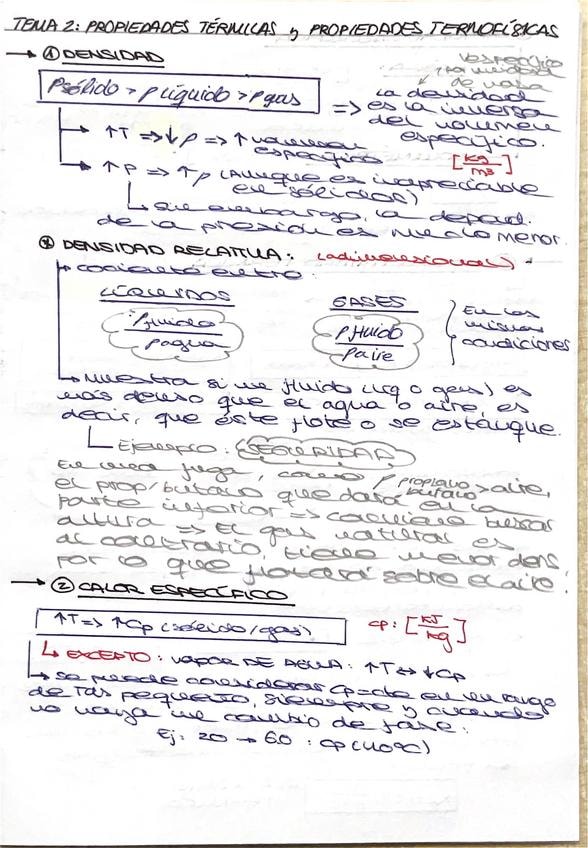 TEMA 2: PROPIEDADES TÉRMICAS y PROPIEDADES TERMOFÍSICAS
→ ① DENSIDAD
ρsólido > ρ líquido > ρ gas
Vespecífico
unidad
de masa
⇒ la densidad
es la inversa
del volumen
específico.
↑T ⇒ ↓ρ ⇒ ↑ volumen
específico
[kg/m3]
↑P ⇒ ↑ρ (Aunque es inapreciable
en sólidos)
sin embargo, la depend.
de la presión es mucho menor.
* DENSIDAD RELATIVA: (adimensional)
cociente entre:
LÍQUIDOS
ρfluido
ρagua
GASES
ρfluido
ρaire
En las
mismas
condiciones
Muestra si un fluido (líq o gas) es
más denso que el agua o aire, es
decir, que éste flote o se estanque.
Ejemplo: SEGURIDAD
En una fuga, como ρ propano/butano > aire,
el prop/butano quedará en la
parte inferior ⇒ conviene buscar
altura ⇒ El gas natural es
al contrario, tiene menor dens
por lo que flotará sobre el aire.
→ ② CALOR ESPECÍFICO
↑T ⇒ ↑Cp (sólido/gas)
cp: [KJ/kg]
EXCEPTO: VAPOR DE AGUA: ↑T ↔ ↓Cp
se puede considerar Cp=cte en un rango
de Tas pequeño, siempre y cuando
no haya un cambio de fase.
Ej: 20 → 60 : cp (40ºC)